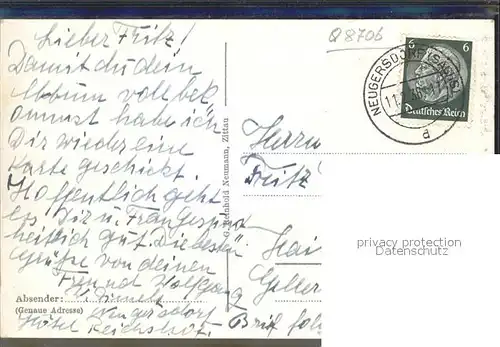 Q8706
Lieber Fritz!
Damit du dein
Album voll bek
ommst habe ich
Dir wieder eine
Karte geschickt.
Hoffentlich geht
es Dir u. Frau gesund
heitlich gut. Die besten
Grüße von deinen
Freund Wolfgang
Absender:
(Genaue Adresse)
Neugersdorf
Hotel Reichshof.
G. Reinhold Neumann, Zittau
NEUGERSDORF (SACHS)
11.
d
6 6
Deutsches Reich
Herrn
Fritz
Hai
Geller
Brief folg
privacy protection
Datenschutz